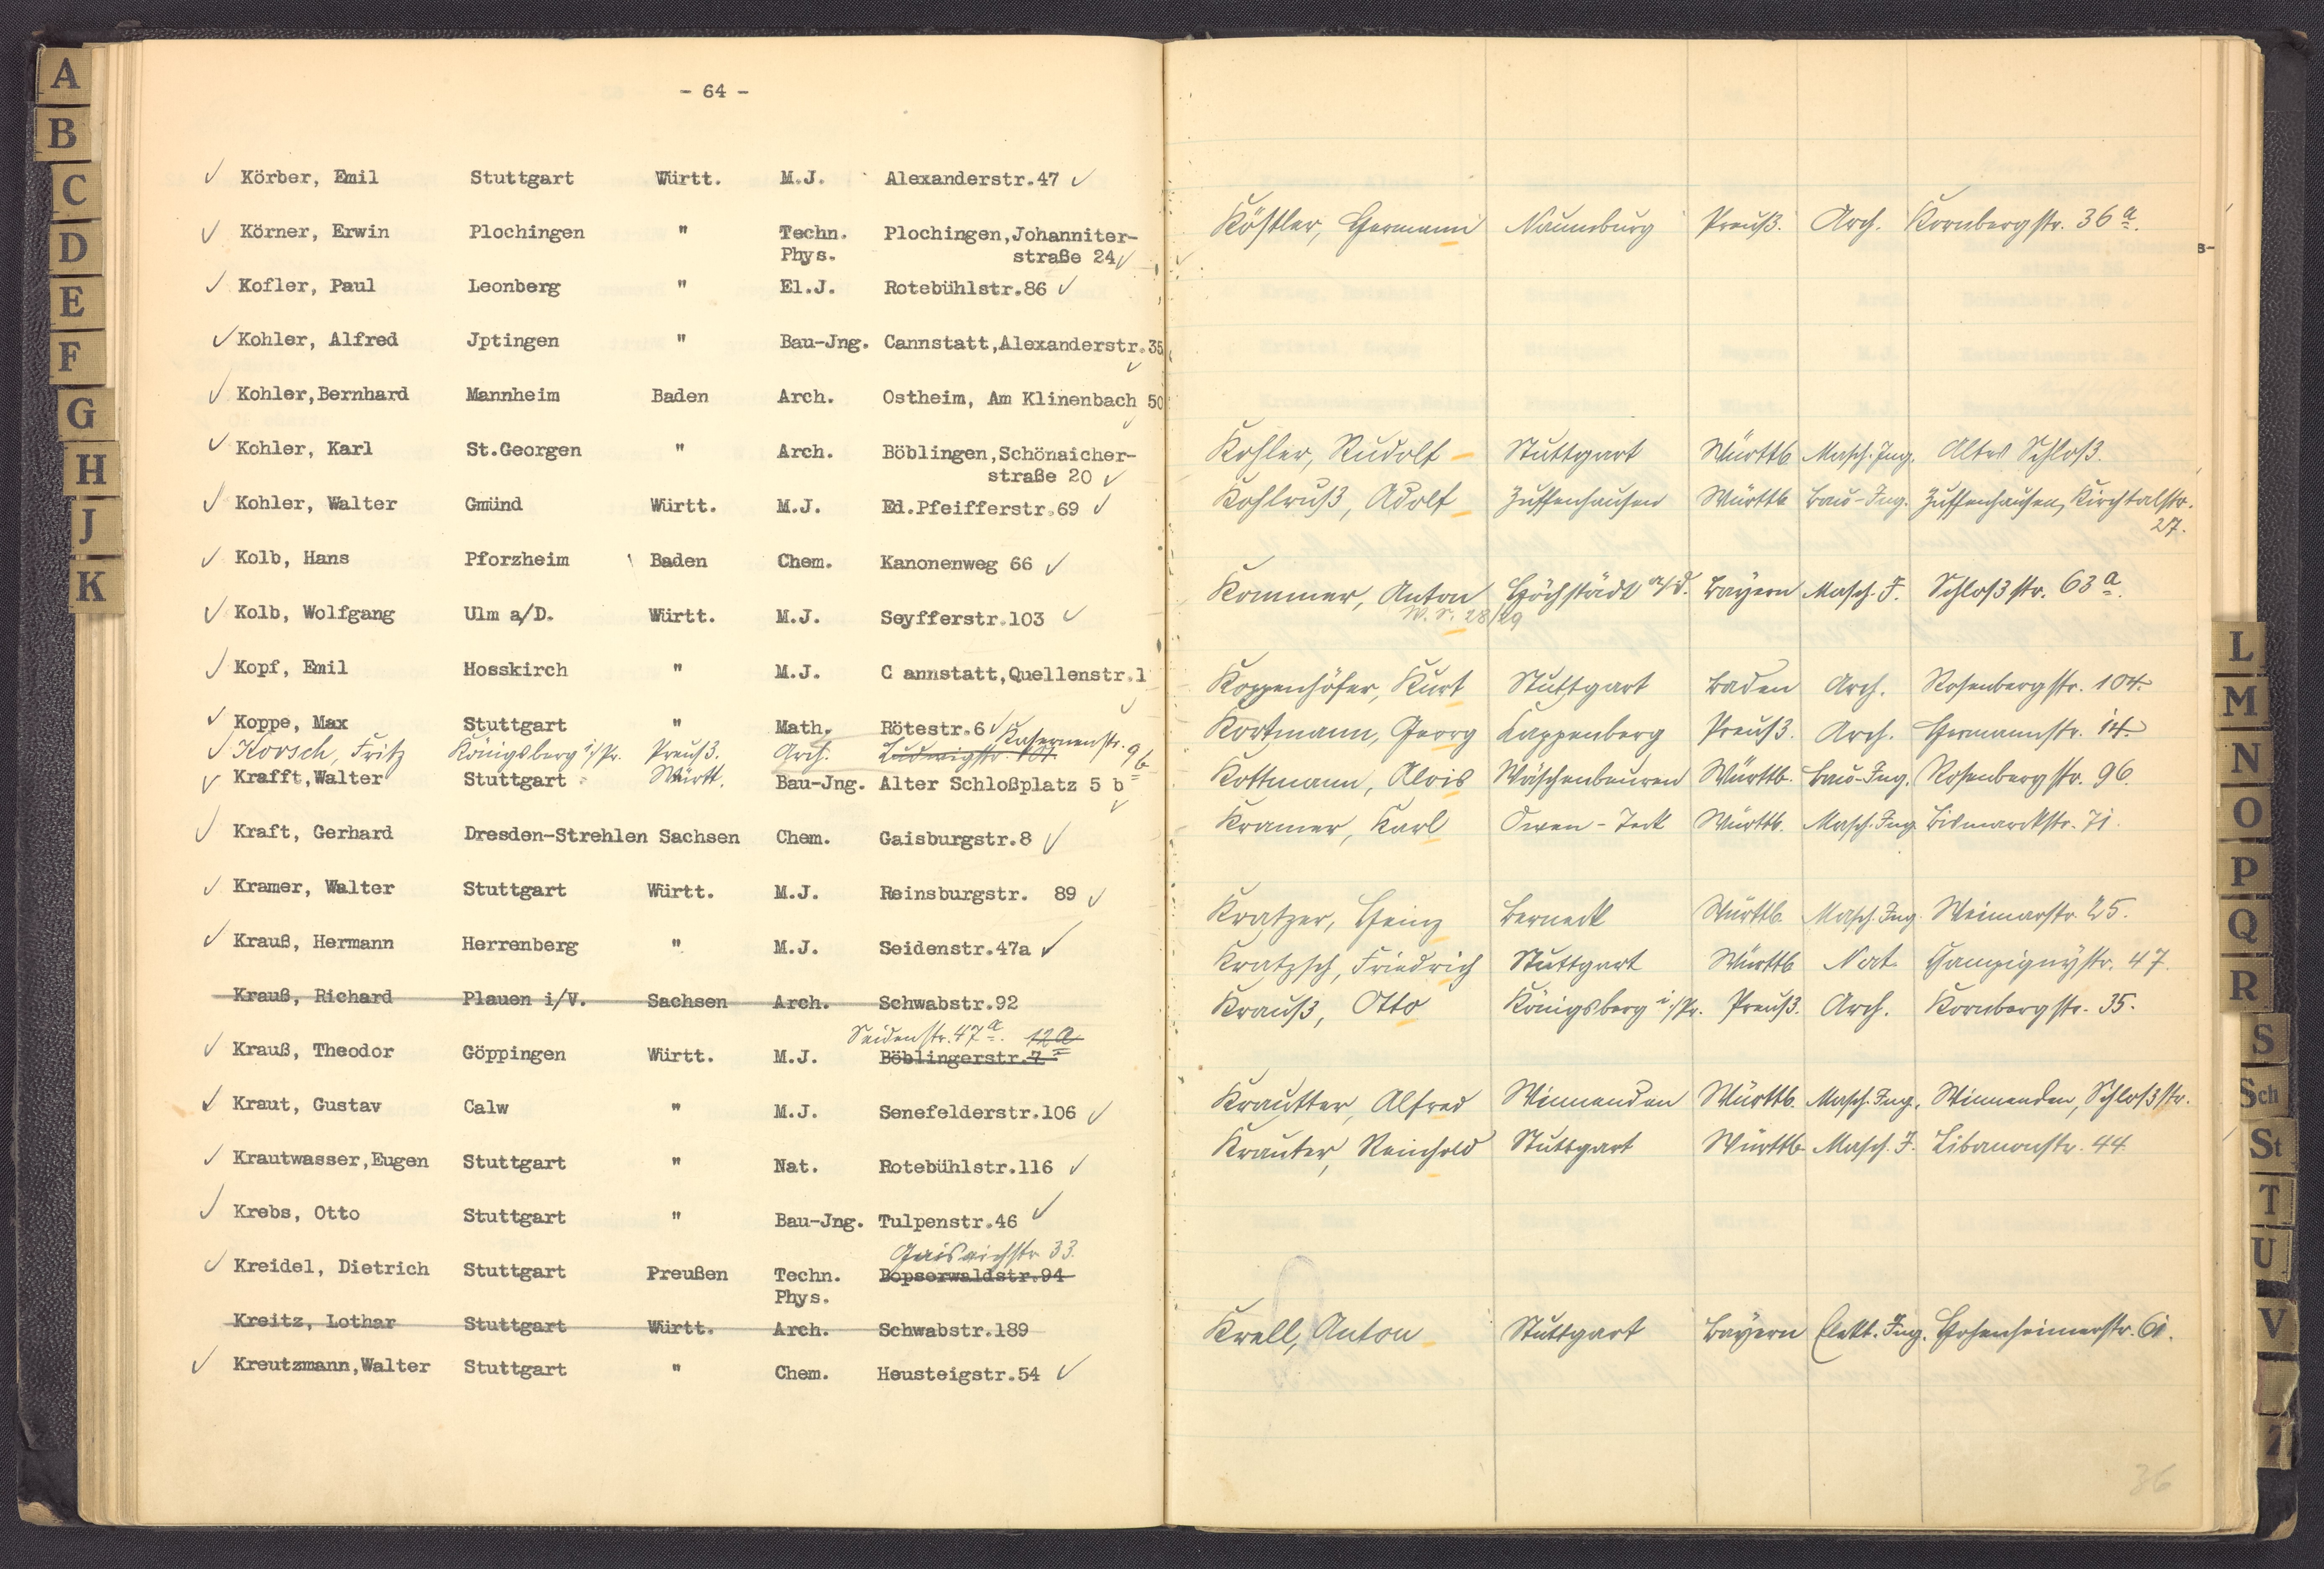 A
B
C
D
E
F
G
H
J
K
- 64 -
Körber, Emil Stuttgart Württ. M.J. Alexanderstr.47
Körner, Erwin Plochingen " Techn. Plochingen,Johanniter-
Phys. straße 24
Kofler, Paul Leonberg " El.J. Rotebühlstr.86
Kohler, Alfred Jptingen " Bau-Jng. Cannstatt,Alexanderstr.35
Kohler,Bernhard Mannheim Baden Arch. Ostheim, Am Klinenbach 50
Kohler, Karl St.Georgen " Arch. Böblingen,Schönaicher-
straße 20
Kohler, Walter Gmünd Württ. M.J. Ed.Pfeifferstr.69
Kolb, Hans Pforzheim Baden Chem. Kanonenweg 66
Kolb, Wolfgang Ulm a/D. Württ. M.J. Seyfferstr.103
Kopf, Emil Hosskirch " M.J. C annstatt,Quellenstr.1
Koppe, Max Stuttgart " Math. Rötestr.6
Korsch, Fritz Königsberg i/Pr. Preuß. Arch. Ludwigstr. 101 Kasernenstr. 9b
Krafft,Walter Stuttgart Württ. Bau-Jng. Alter Schloßplatz 5 b
Kraft, Gerhard Dresden-Strehlen Sachsen Chem. Gaisburgstr.8
Kramer, Walter Stuttgart Württ. M.J. Reinsburgstr. 89
Krauß, Hermann Herrenberg " M.J. Seidenstr.47a
Krauß, Richard Plauen i/V. Sachsen Arch. Schwabstr.92
Seidenstr. 47a. 12a
Krauß, Theodor Göppingen Württ. M.J. Böblingerstr.7
Kraut, Gustav Calw " M.J. Senefelderstr.106
Krautwasser,Eugen Stuttgart " Nat. Rotebühlstr.116
Krebs, Otto Stuttgart " Bau-Jng. Tulpenstr.46
Gaiseichstr 33.
Kreidel, Dietrich Stuttgart Preußen Techn. Bopserwaldstr.94
Phys.
Kreitz, Lothar Stuttgart Württ. Arch. Schwabstr.189
Kreutzmann,Walter Stuttgart " Chem. Heusteigstr.54
Köstler, Hermann Naumburg Preuß. Arch. Kornbergstr. 36a.
s-
Kohler, Rudolf Stuttgart Württb. Masch. Ing. Altes Schloß.
Kohlruß, Adolf Zuffenhausen Württb. Bau-Ing. Zuffenhausen, Kirchtalstr.
27.
Kommer, Anton Höchstädt a/d. Bayern Masch. I. Schloßstr. 63a.
W.S. 28/29
Koppenhöfer, Kurt Stuttgart Baden Arch. Rosenbergstr. 104.
Kortmann, Georg Kappenberg Preuß. Arch. Hermannstr. 14.
Kottmann, Alois Wäschenbeuren Württb. Bau-Ing. Rosenbergstr. 96.
Kramer, Karl Owen-Teck Württb. Masch. Ing. Bismarckstr. 71.
Kratzer, Heinz Berneck Württb. Masch. Ing. Weimarstr. 25.
Kratzsch, Friedrich Stuttgart Württb. Nat. Champignystr. 47.
Krauß, Otto Königsberg i/Pr. Preuß. Arch. Kornbergstr. 35.
Krautter, Alfred Winnenden Württb. Masch. Ing. Winnenden, Schloßstr.
Krauter, Reinhold Stuttgart Württb. Masch. I. Libanonstr. 44.
Krell, Anton Stuttgart Bayern Elekt. Ing. Hohenheimerstr. 61.
36
L
M
N
O
P
Q
R
S
Sch
St
T
U
V
Z